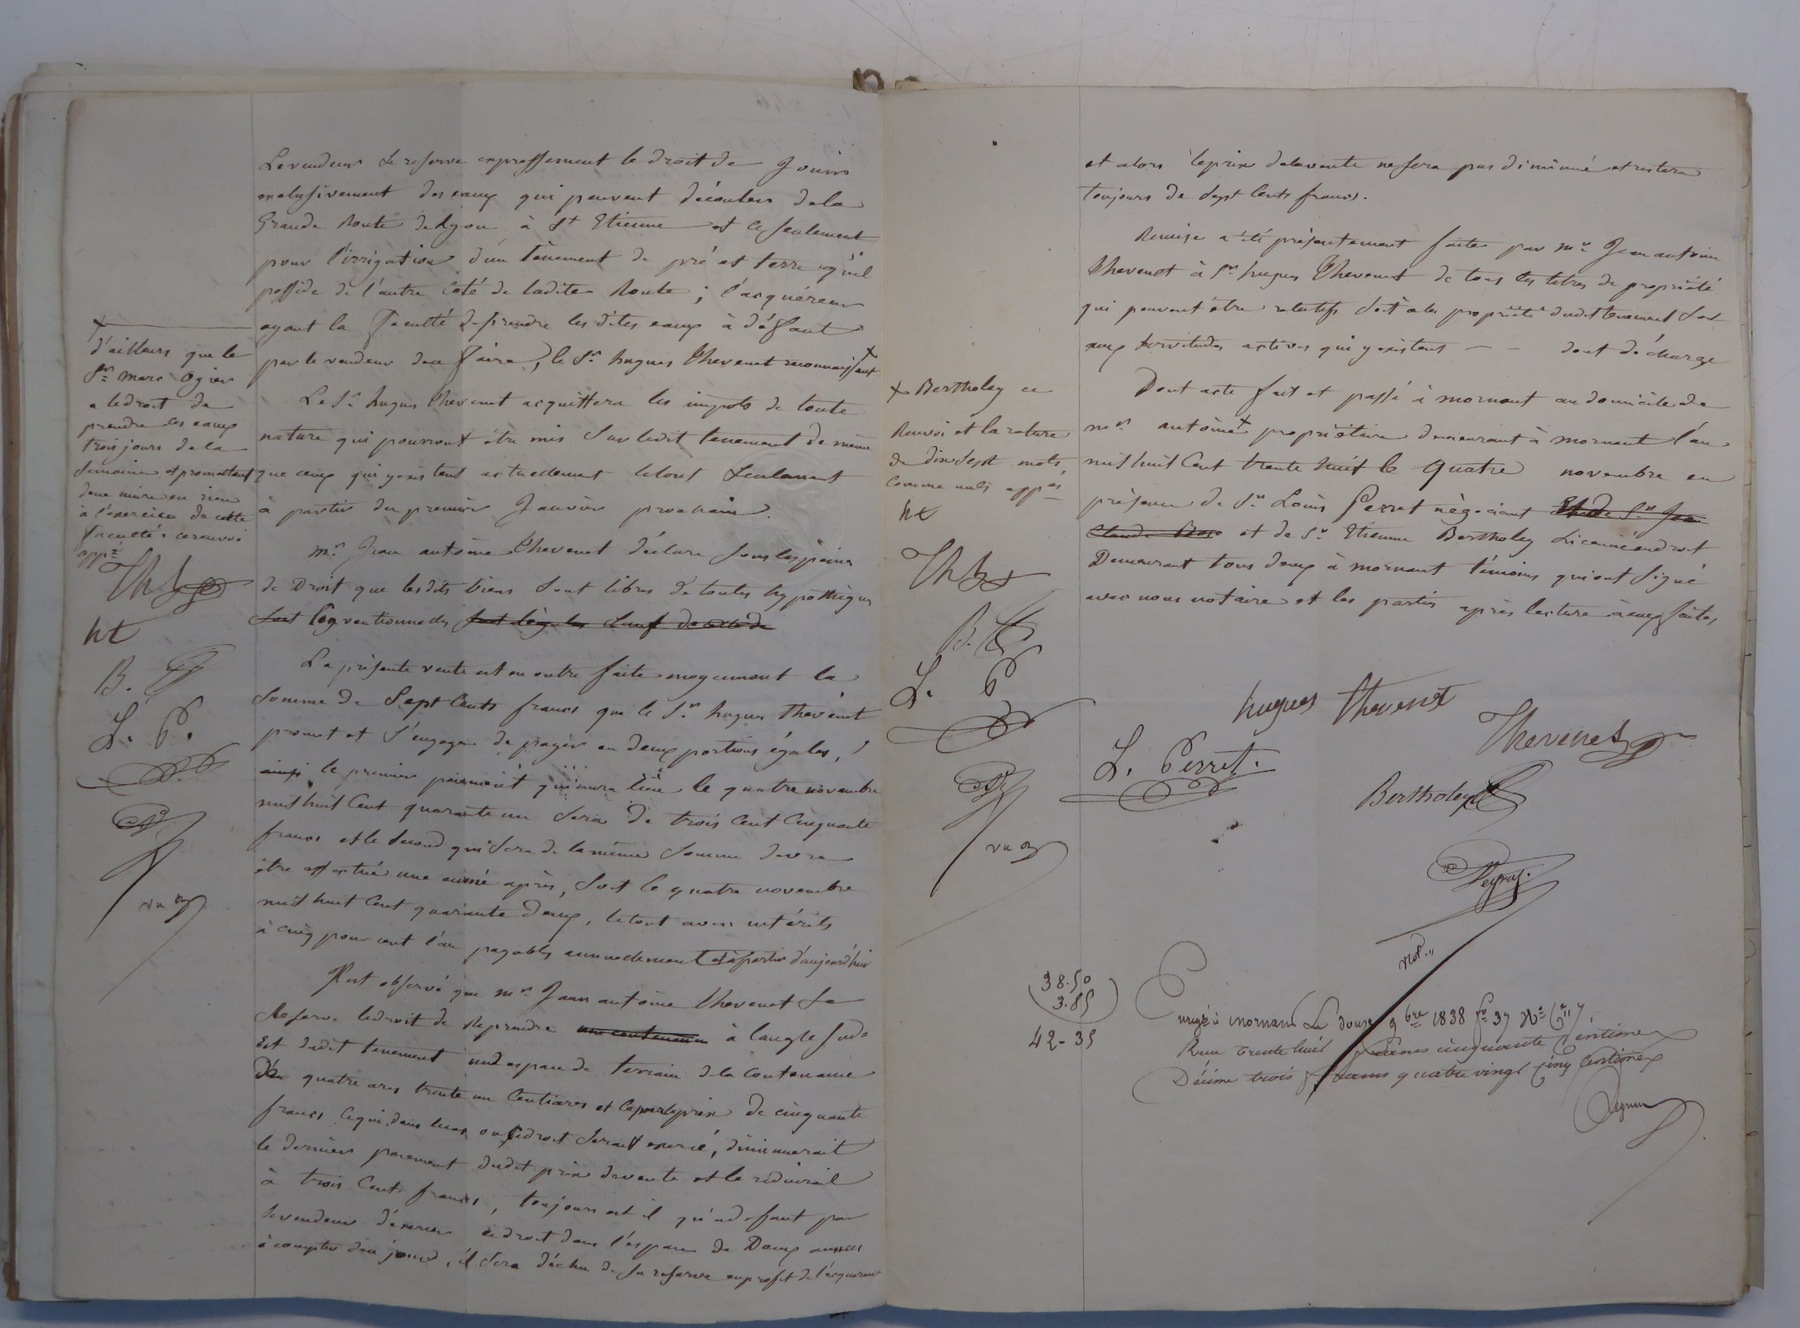 Le vendeur se reserve expressement le droit de Jouir
exclusivement des eaux qui peuvent découler de la
Grande Route de Lyon à St Etienne et ce seulement
pour l'irrigation d'un tènement de pré et terre qu'il
possède de l'autre coté de ladite Route ; l'acquéreur
ayant la faculté de prendre les dites eaux à défaut
par le vendeur de le faire, le Sr hugues Thevenet reconnaissant +
Le Sr hugues Thevenet acquittera les impots de toute
nature qui pourront être mis sur ledit tenement de même
que ceux qui y existent actuellement le tout seulement
à partir du premier Janvier prochain.
mr Jean antoine Thevenet déclare sous les peines
de Droit que lesdits biens sont libres de toutes hypothèques
soit Conventionnelles soit légales sauf de celle de
La présente vente est en outre faite moyennant la
Somme de Sept Cents francs que le Sr hugues Thevenet
promet et s'engage de payer en deux portions égales,
ainsi le premier paiement qui aura lieu le quatre novembre
mil huit Cent quarante un sera de trois Cent Cinquante
francs et le second qui sera de la même somme devra
être effectué une année après, soit le quatre novembre
mil huit Cent quarante deux, le tout avec intérêts
à cinq pour cent l'an payables annuellement et à partir d'aujourd'hui
Il est observé que mr Jean antoine Thevenet se
Reserve le droit de Reprendre une contenance à l'angle sud-
Est dudit tenement un espace de terrain de la contenance
De quatre ares trente un Centiares et ce pour le prix de cinquante
francs ce qui, dans le cas où ce droit serait exercé, diminuerait
le dernier paiement dudit prix de vente et le réduirait
à trois Cent francs, toujours est il qu'à défaut par
le vendeur d'exercer ce droit dans l'espace de Deux années
à compter de ce jour, il sera déchu de sa reserve au profit de l'acquereur
+
d'ailleurs que le
Sr marc Ogier
a le droit de
prendre les eaux
trois jours de la
semaine et promettant
de ne nuire en rien
à l'exercice de cette
faculté: ce renvoi
appé
Th
ht
B.
L. P.
vu
et alors le prix de la vente ne sera pas diminué et restera
toujours de Sept Cents francs.
Remise a été présentement faite par mr Jean antoine
Thevenet à Sr hugues Thevenet de tous les titres de propriété
qui peuvent être relatifs soit à la propriété dudit tenement soit
aux servitudes actives qui y existent — — dont décharge
Dont acte fait et passé à mornant au domicile de
mr antoine + propriétaire demeurant à mornant l'an
mil huit Cent trente huit le quatre novembre en
présence de Sr Louis Perret négociant Et de Sr Jean
Claude et de Sr Etienne Bertholey Licencié en droit
Demeurant tous deux à mornant témoins qui ont signé
avec nous notaire et les parties après lecture à eux faite,
+ Bertholey ce
Renvoi et la rature
de dix sept mots
comme nuls appés
ht
Th
B.
L. P
vu
hugues thevenet
Thevenet
L. Perret.
Bertholey
not..
38.50
3.85
42-35
Enregé à mornant Le douze 9bre 1838 fo 37
Reçu trente huit francs cinquante Centimes
Décime trois francs quatre vingt cinq Centimes